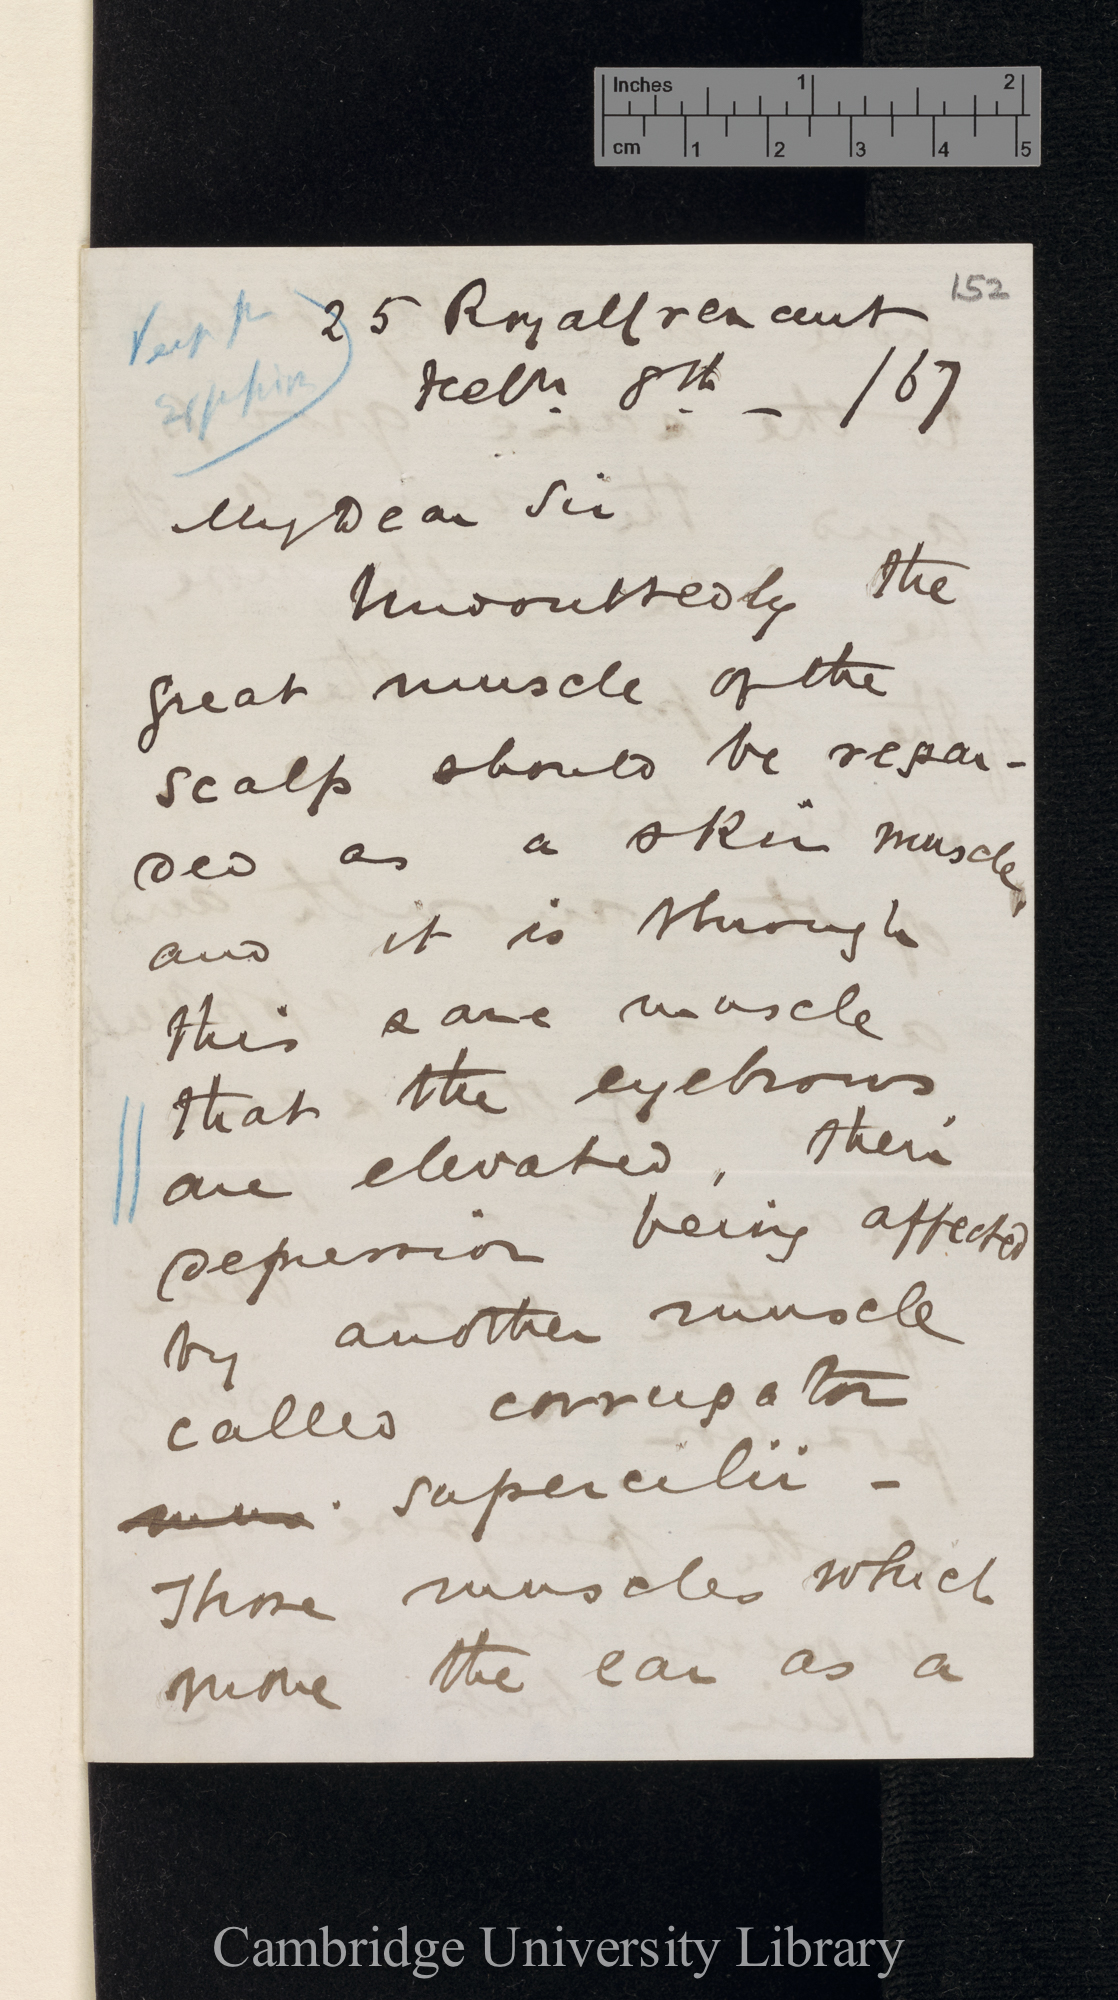 Inches 1 2
cm 1 2 3 4 5
152
25 Royal Crescent
Feb. 8th – /67
My Dear Sir
Undoubtedly the
great muscle of the
scalp should be regar-
ded as a skin muscle,
and it is through
this same muscle
that the eyebrows
are elevated, their
depression being affected
by another muscle
called corrugator
supercilii –
Those muscles which
move the ear as a
Cambridge University Library